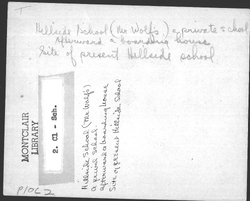 Hillside School (Mr Wolfs,) a private school,
afterward a boarding house
Site of present Hillside school
MONTCLAIR
LIBRARY
2. Cl - Sch.
Hillside School (Mr Wolfs)
a privat school
afterward a boarding house
Site of present Hillside School
P1062